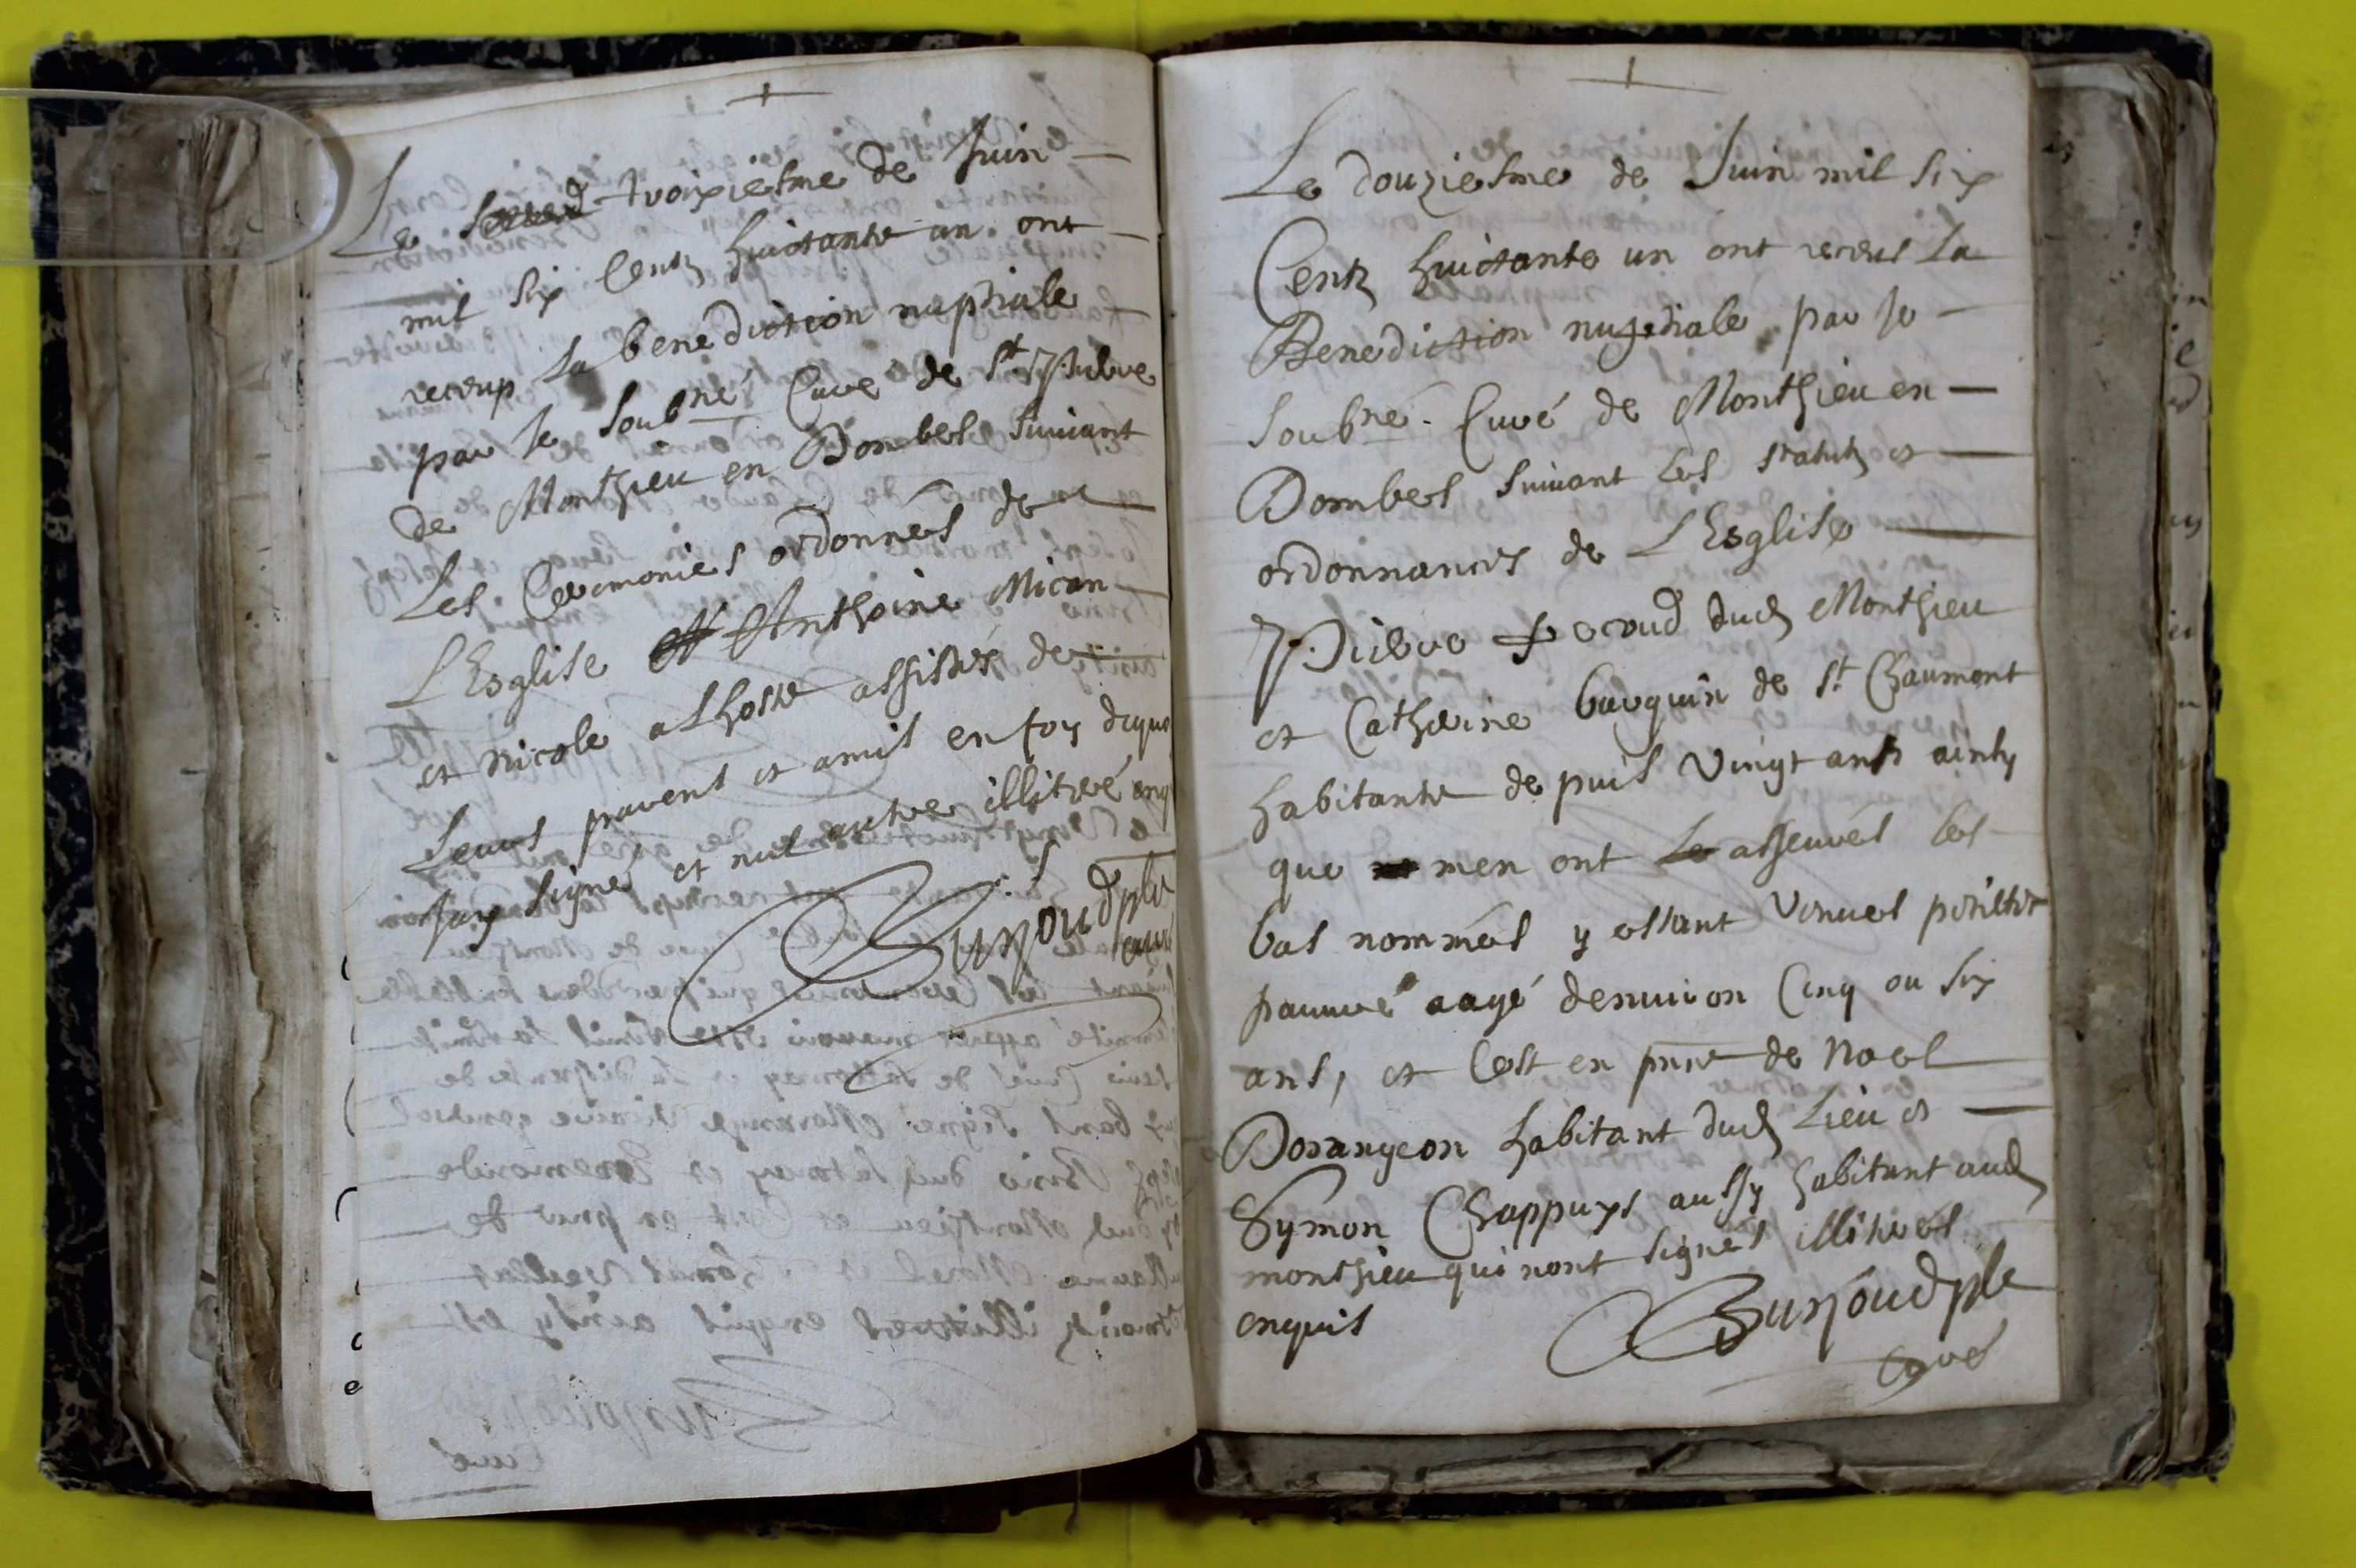 Le troixiesme de Juin
mil six Centz huictante un ont
receup La benediction nuptiale
par Je soubné Curé de St Pierre
de Monthieu en Dombes suivant
Les Ceremonies ordonnées de
L'Esglise Anthoine Mican
et Nicole alhoste assistés de
Leurs parents et amis en foy dequoy
Jay signé et nul autre illitré enq
Curé
Le douziesme de Juin mil six
Centz huictante un ont receus La
Benediction nuptiale par Je
soubné. Curé de Monthieu en
Dombes suivant Les statutz et
ordonnances de L'Esglise
Pierre dud Monthieu
et Catherine barquin de St Chaumont
habitante de puis vingt ans ainsy
que men ont asseurés les
bas nommés y estant venues
pauvre aagé denviron Cinq ou six
ans, et Cest en pnce de Noel
Dorangeon habitant dud Lieu et
Symon Chappuys aussy habitant aud
monthieu qui nont signés illitres
enquis
Curé